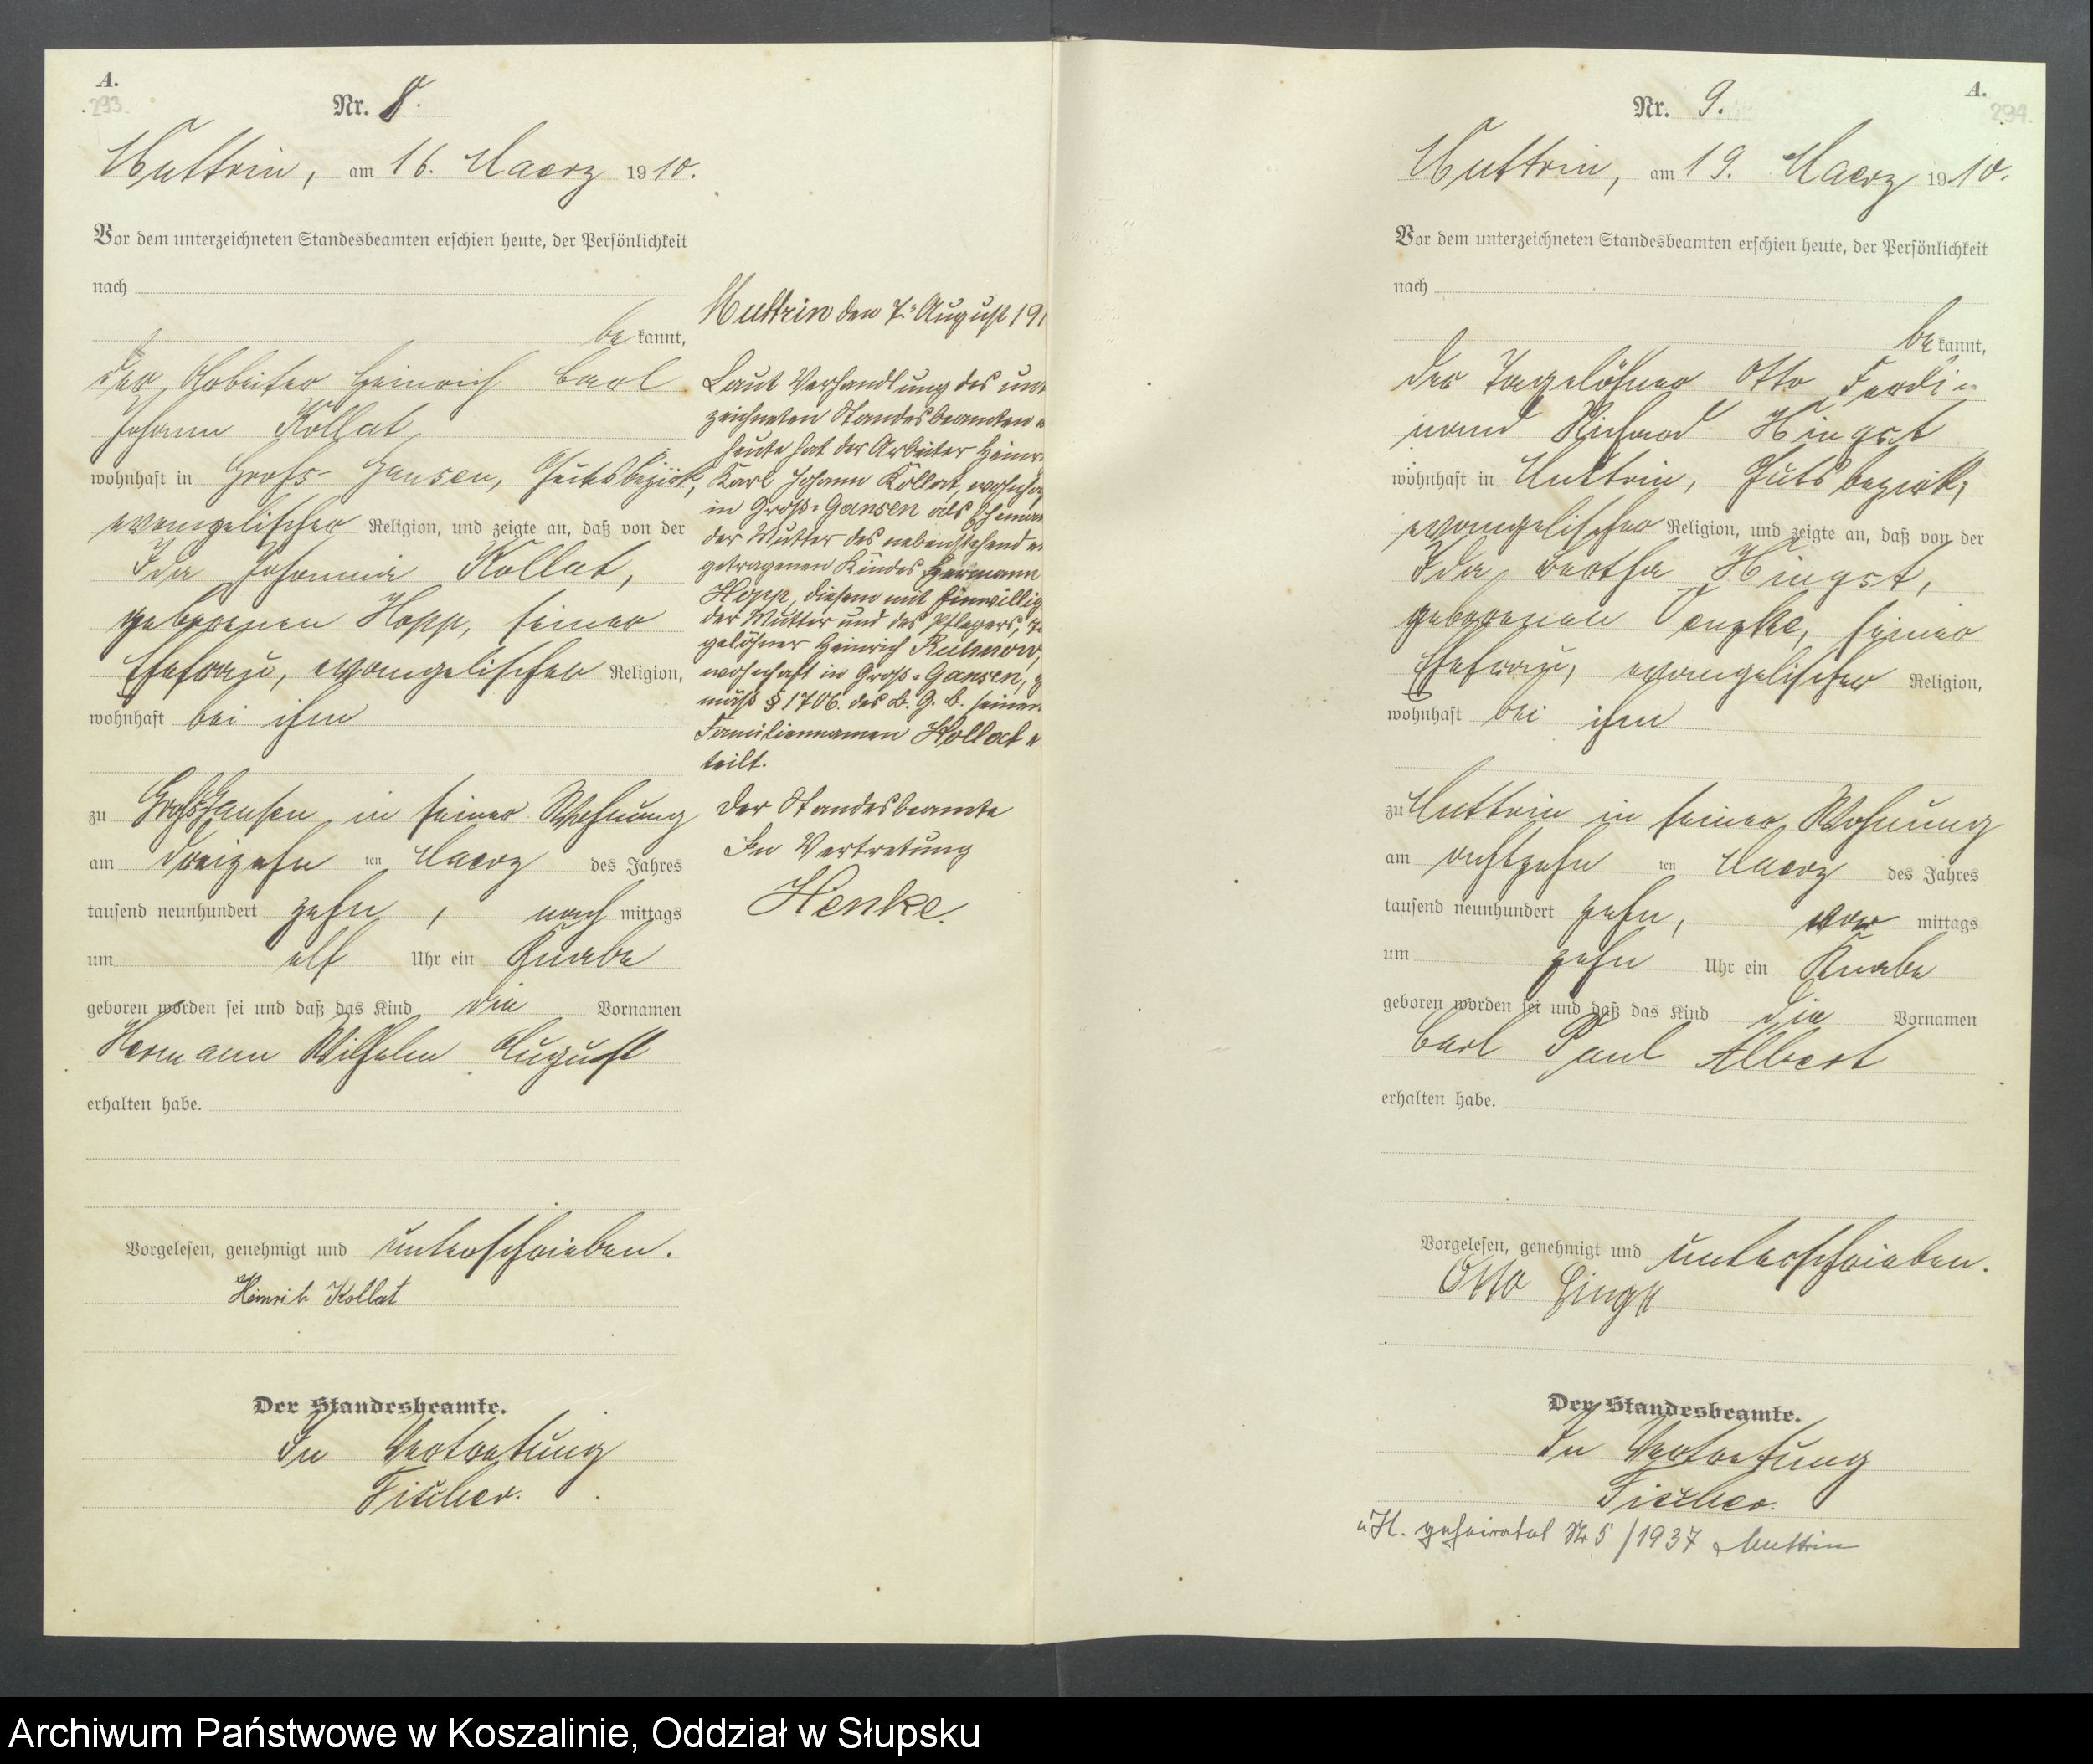 A.
293.
Nr. 8.
Muttrin, am 16. Maerz 1910.
Vor dem unterzeichneten Standesbeamten erschien heute, der Persönlichkeit
nach
be kannt,
der Arbeiter Heinrich Carl
Johann Kollat
wohnhaft in Groß-Gansen, Gutsbezirk,
evangelischer Religion, und zeigte an, daß von der
Ida Johanna Kollat,
geborenen Hopp, seiner
Ehefrau, evangelischer Religion,
wohnhaft bei ihm
zu Groß Gansen in seiner Wohnung
am dreizehn ten Maerz des Jahres
tausend neunhundert zehn, nach mittags
um elf Uhr ein Knabe
geboren worden sei und daß das Kind die Vornamen
Hermann Wilhelm August
erhalten habe.
Vorgelesen, genehmigt und unterschrieben.
Heinrich Kollat
Der Standesbeamte.
In Vertretung
Fischer.
Muttrin den 7. August 191
Laut Verhandlung des unter
zeichneten Standesbeamten
heute hat der Arbeiter Heinr
Karl Johann Kollat, wohnha
in Groß-Gansen als Ehemann
der Mutter des nebenstehend
getragenen Kindes Hermann
Hopp, diesem mit Einwillig
der Mutter und des Pflegers,
gelöhner Heinrich Ruhnow,
wohnhaft in Groß-Gansen, g
mäß § 1706. des B. G. B. seinen
Familiennamen Kollat e
teilt.
Der Standesbeamte
In Vertretung
Henke.
A.
294.
Nr. 9.
Muttrin, am 19. Maerz 1910.
Vor dem unterzeichneten Standesbeamten erschien heute, der Persönlichkeit
nach
be kannt,
der Tagelöhner Otto Ferdi-
nand Richard Hingst
wohnhaft in Muttrin, Gutsbezirk,
evangelischer Religion, und zeigte an, daß von der
Ida Bertha Hingst,
geborenen Venzke, seiner
Ehefrau, evangelischer Religion,
wohnhaft bei ihm
zu Muttrin in seiner Wohnung
am achtzehn ten Maerz des Jahres
tausend neunhundert zehn, vor mittags
um zehn Uhr ein Knabe
geboren worden sei und daß das Kind die Vornamen
Carl Paul Albert
erhalten habe.
Vorgelesen, genehmigt und unterschrieben.
Otto Hingst
Der Standesbeamte.
In Vertretung
Fischer.
H. geheiratet Nr 5/1937 Muttrin
Archiwum Państwowe w Koszalinie, Oddział w Słupsku